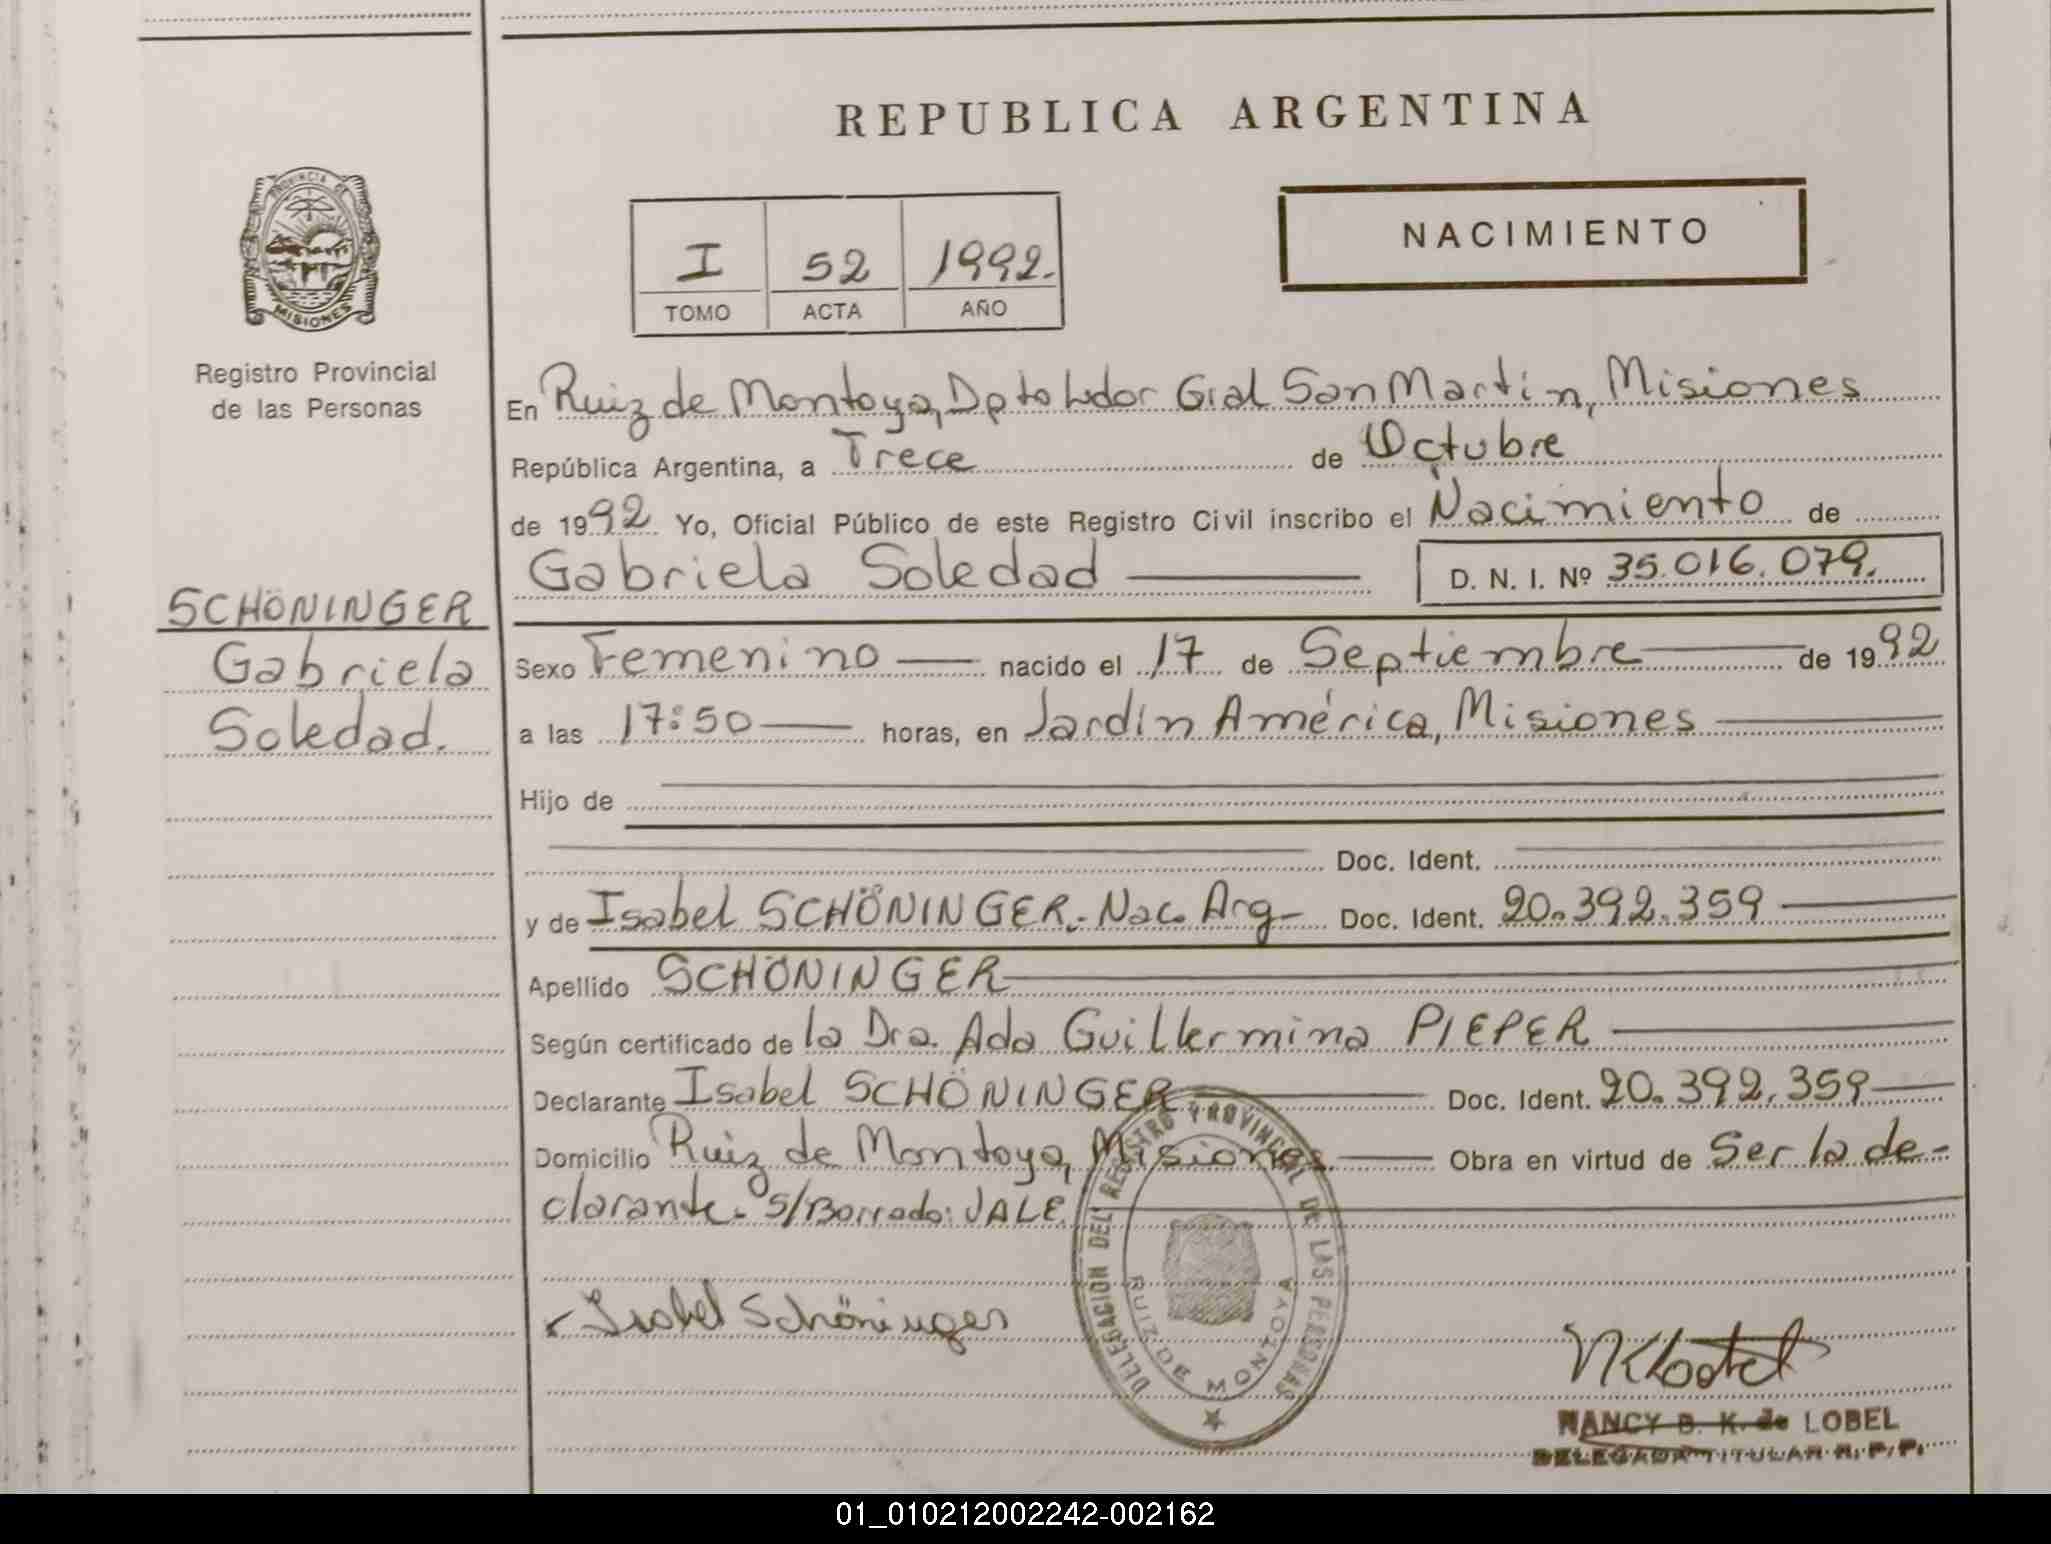 REPUBLICA ARGENTINA
PROVINCIA DE
MISIONES
Registro Provincial
de las Personas
I 52 1992.
TOMO ACTA AÑO
NACIMIENTO
En Ruiz de Montoya, Dpto Ldor Gral San Martín, Misiones
República Argentina, a Trece de Octubre
de 1992 Yo, Oficial Público de este Registro Civil inscribo el Nacimiento de
Gabriela Soledad D. N. I. Nº 35.016.079.
SCHÖNINGER
Gabriela
Soledad.
Sexo Femenino nacido el 17 de Septiembre de 1992
a las 17:50 horas, en Jardín América, Misiones
Hijo de
Doc. Ident.
y de Isabel SCHÖNINGER. Nac. Arg- Doc. Ident. 20.392.359
Apellido SCHÖNINGER
Según certificado de la Dra. Ada Guillermina PIEPER
Declarante Isabel SCHÖNINGER Doc. Ident. 20.392.359
Domicilio Ruiz de Montoya, Misiones. Obra en virtud de Ser la de-
clarante. S/Borrado: VALE
Isabel Schöninger
DELEGACIÓN DEL REGISTRO PROVINCIAL DE LAS PERSONAS
RUIZ DE MONTOYA
NANCY B. K. de LOBEL
DELEGADA TITULAR R. P. P.
01_010212002242-002162